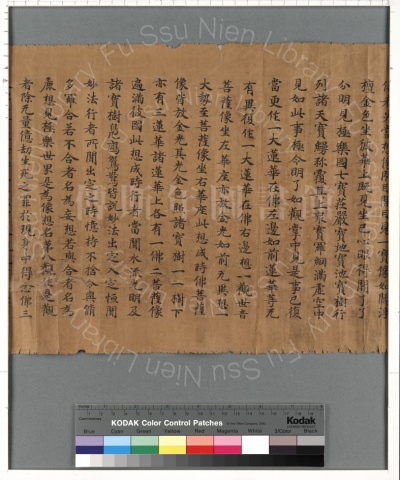 檀金色坐彼華上既見坐已心眼得開了了
分明見極樂國七寶莊嚴寶地寶池寶樹行
列諸天寶縵弥覆其上衆寶羅網滿虛空中
見如此事極令明了如觀掌中見是事已復
當更作一大蓮華在佛左邊如前蓮華等无
有異復作一大蓮華在佛右邊想一觀世音
菩薩像坐左華座亦放金光如前无異想一
大勢至菩薩像坐右華座此想成時佛菩薩
像皆放金光其光金色照諸寶樹一一樹下
亦有三蓮華諸蓮華上各有一佛二菩薩像
遍滿彼國此想成時行者當聞水流光明及
諸寶樹鳧鴈鴛鴦皆說妙法出定入定恒聞
妙法行者所聞出定之時憶持不捨令與脩
多羅合若不合者名為妄想若與合者名為
麁想見極樂世界是為像想名第八觀作是觀
者除无量億劫生死之罪於現身中得念佛三
Fu Ssu Nien Library
KODAK Color Control Patches
Kodak
Blue Cyan Green Yellow Red Magenta White 3/Color Black